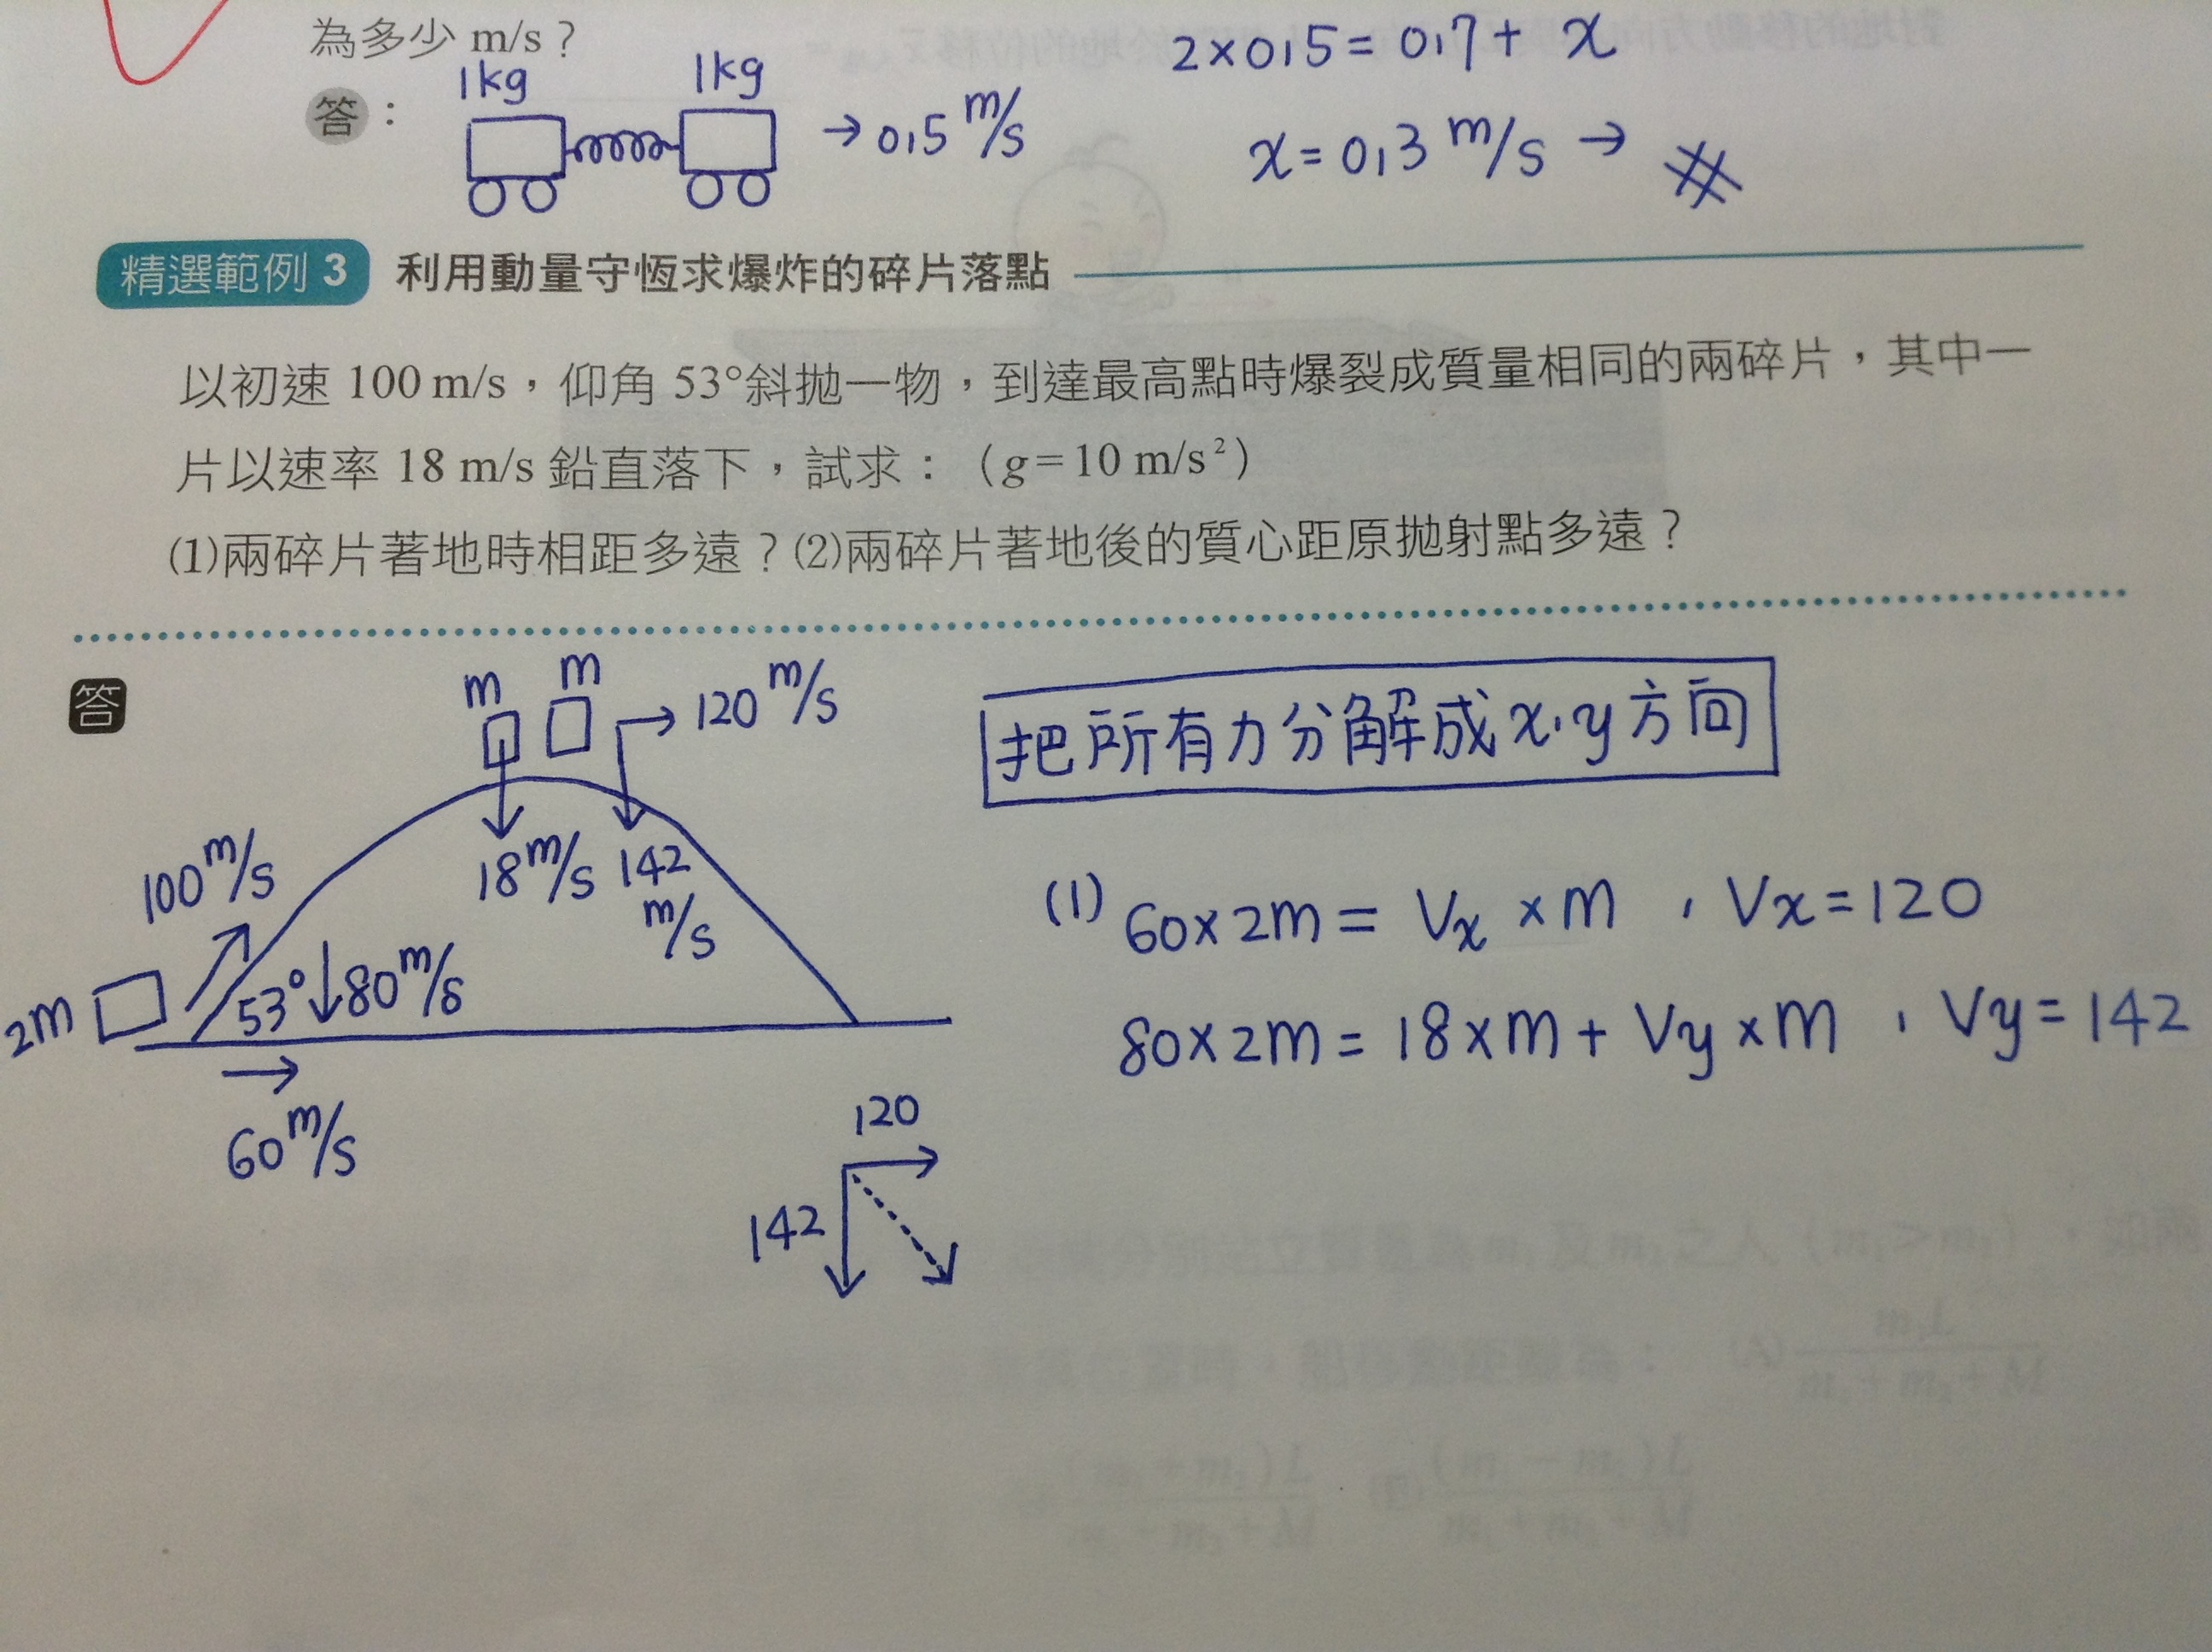 為多少 m/s？
2×0.5=0.7+x
1kg 1kg
答： →0.5 m/s
x=0.3 m/s → #
精選範例 3 利用動量守恆求爆炸的碎片落點
以初速 100 m/s，仰角 53°斜拋一物，到達最高點時爆裂成質量相同的兩碎片，其中一
片以速率 18 m/s 鉛直落下，試求：（g=10 m/s²）
(1)兩碎片著地時相距多遠？(2)兩碎片著地後的質心距原拋射點多遠？
答
m m →120 m/s
把所有力分解成x、y方向
18 m/s 142 m/s
100 m/s
2m 53° ↓80 m/s
→
60 m/s
(1) 60×2m= Vx ×m , Vx=120
80×2m= 18×m+ Vy×m , Vy=142
120
142